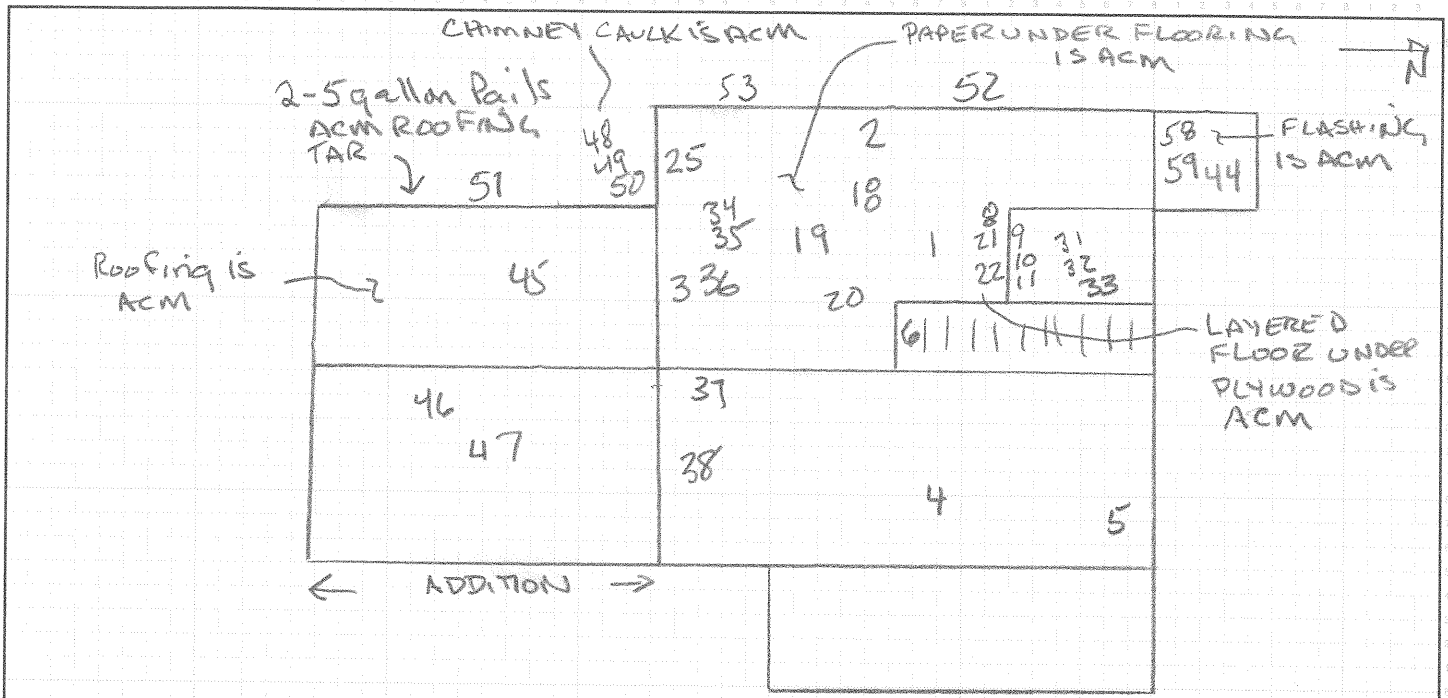 CHIMNEY CAULK IS ACM
PAPER UNDER FLOORING
IS ACM
N
2-5 gallon Pails
ACM ROOFING
TAR
53
52
48
49
50
51
25
2
58
59 44
FLASHING
IS ACM
18
34
35
19
1
8
21 9
31
22 10
32
11
33
Roofing is
ACM
45
3 36
20
6
LAYERED
FLOOR UNDER
PLYWOOD is
ACM
46
47
37
38
4
5
← ADDITION →